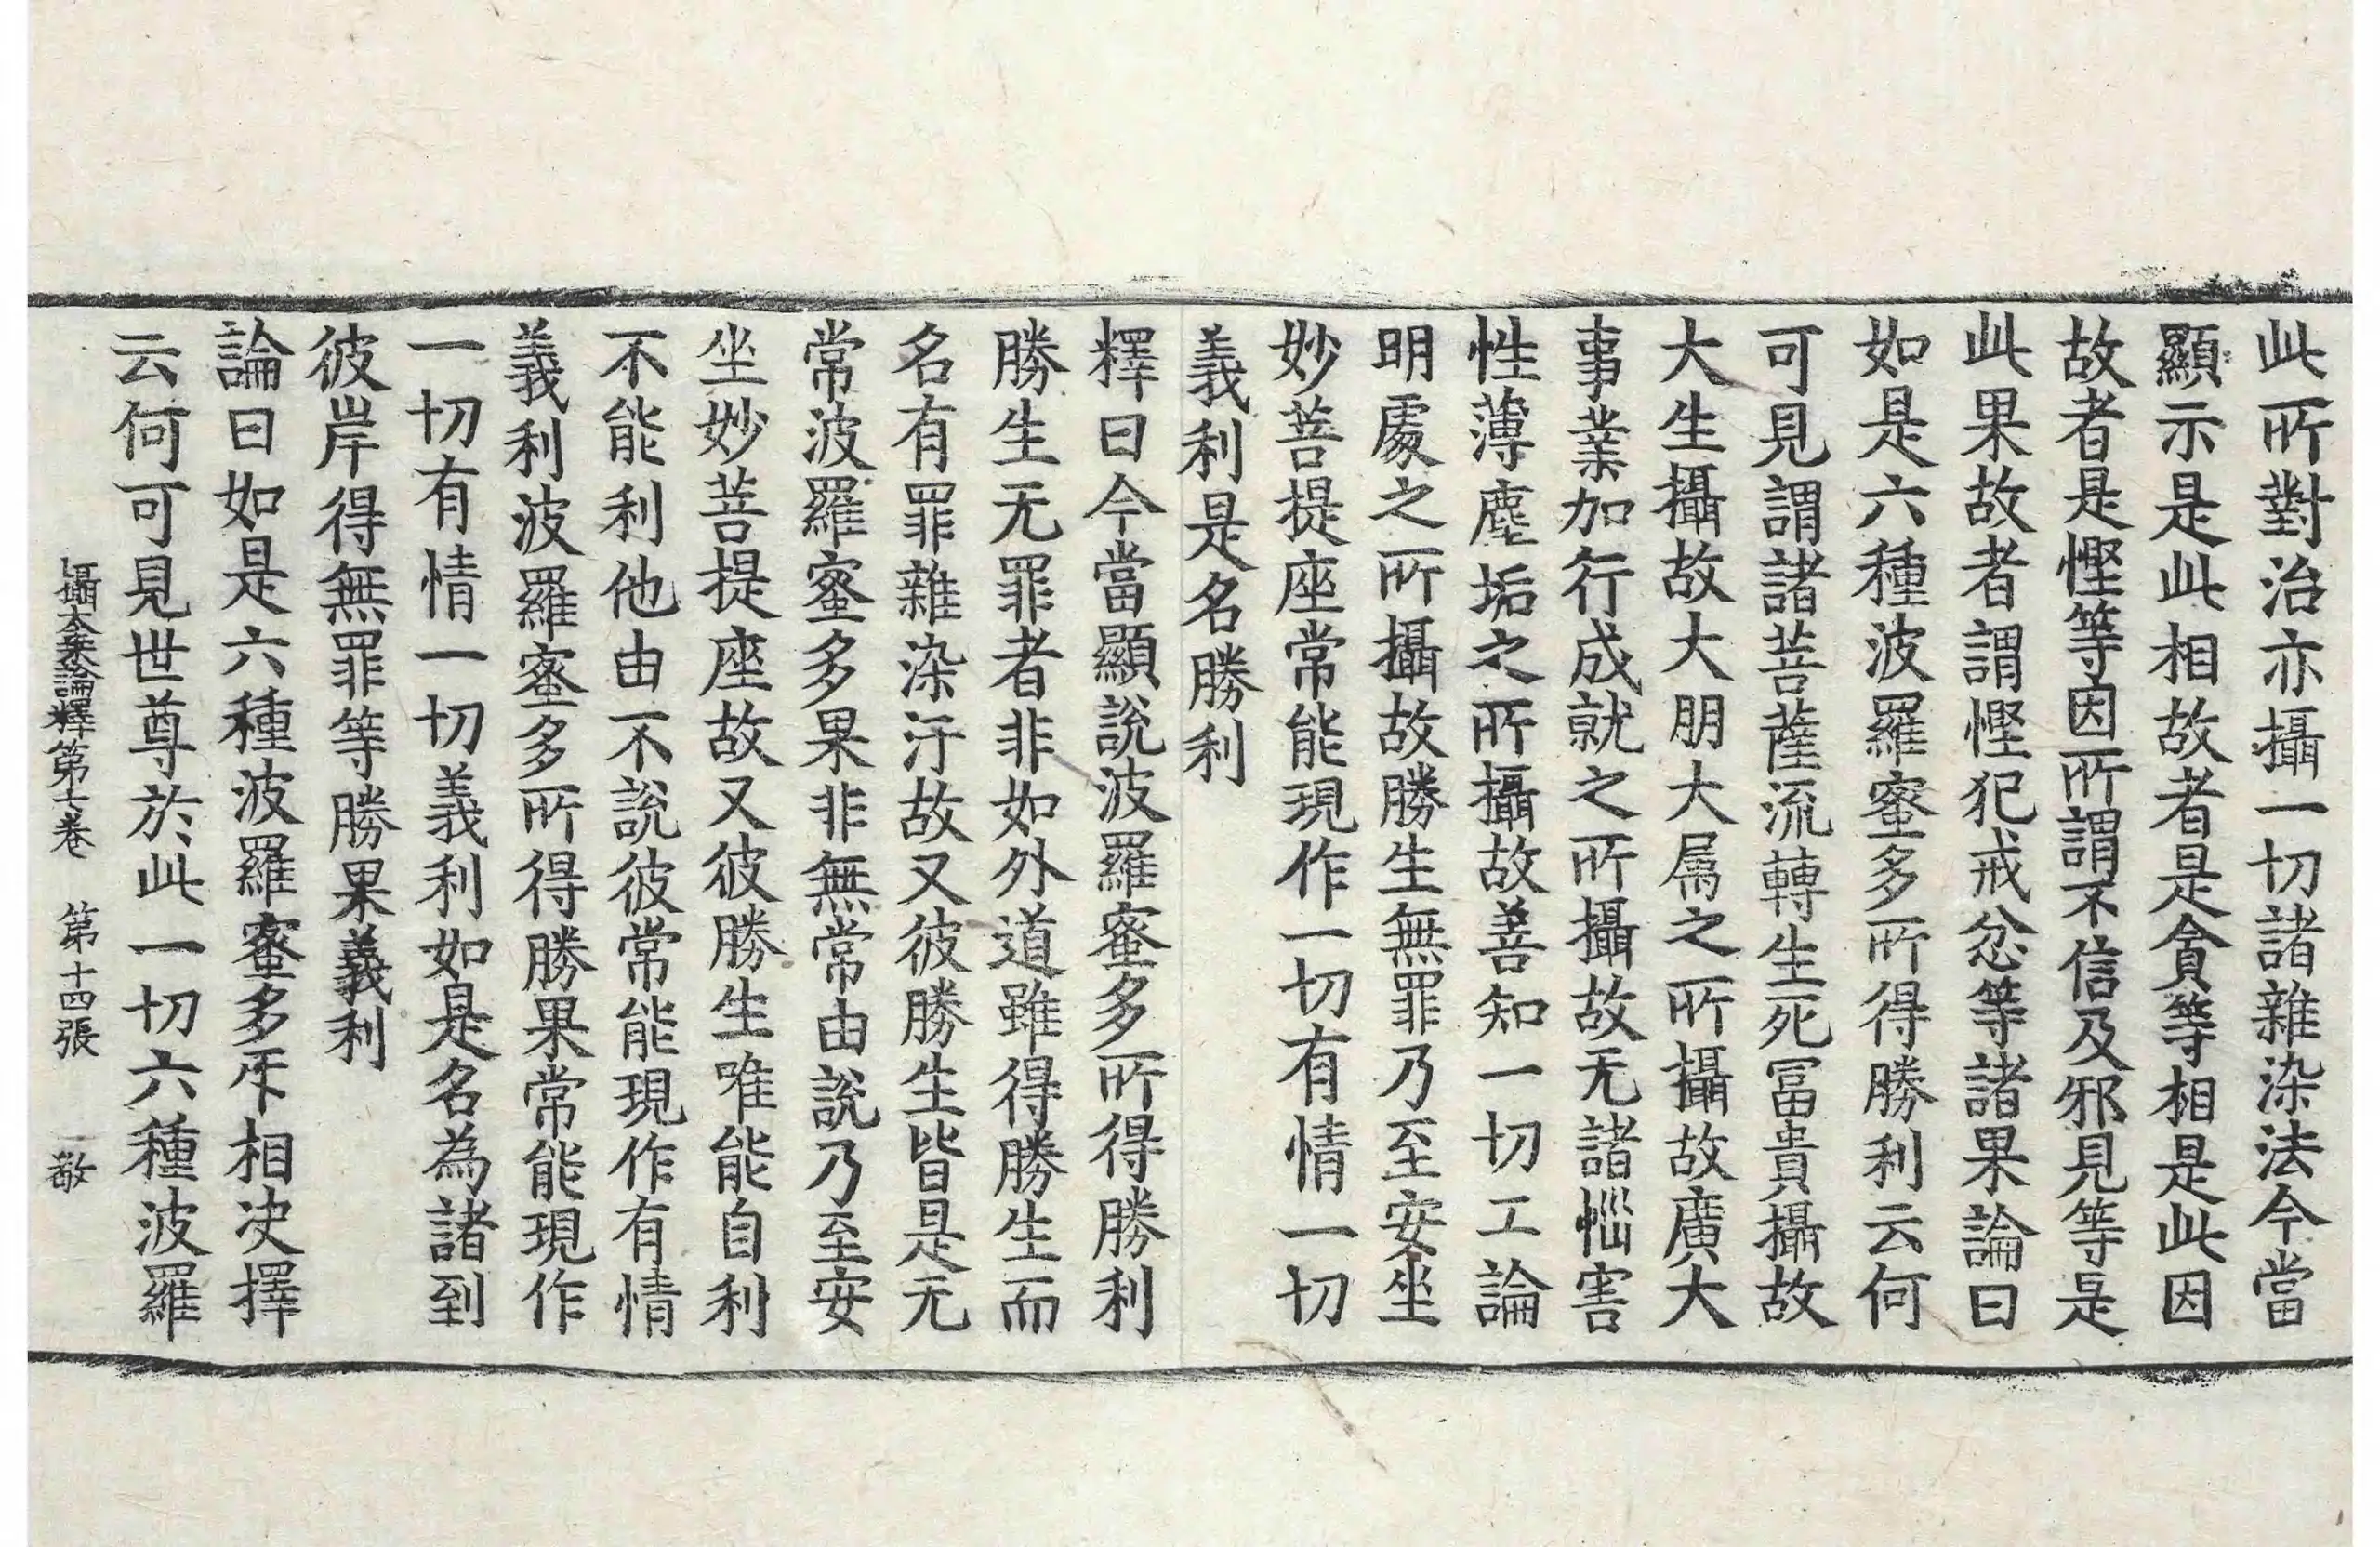 此所對治亦攝一切諸雜染法今當
顯示是此相故者是貪等相是此因
故者是慳等因所謂不信及邪見等是
此果故者謂慳犯戒忿等諸果論曰
如是六種波羅蜜多所得勝利云何
可見謂諸菩薩流轉生死冨貴攝故
大生攝故大朋大属之所攝故廣大
事業加行成就之所攝故无諸惱害
性薄塵垢之所攝故善知一切工論
明處之所攝故勝生無罪乃至安坐
妙菩提座常能現作一切有情一切
義利是名勝利
釋曰今當顯說波羅蜜多所得勝利
勝生无罪者非如外道雖得勝生而
名有罪雜染汙故又彼勝生皆是无
常波羅蜜多果非無常由說乃至安
坐妙菩提座故又彼勝生唯能自利
不能利他由不說彼常能現作有情
義利波羅蜜多所得勝果常能現作
一切有情一切義利如是名為諸到
彼岸得無罪等勝果義利
論曰如是六種波羅蜜多㸦相决擇
云何可見世尊於此一切六種波羅
攝大乗論釋第七卷 第十四張 敬